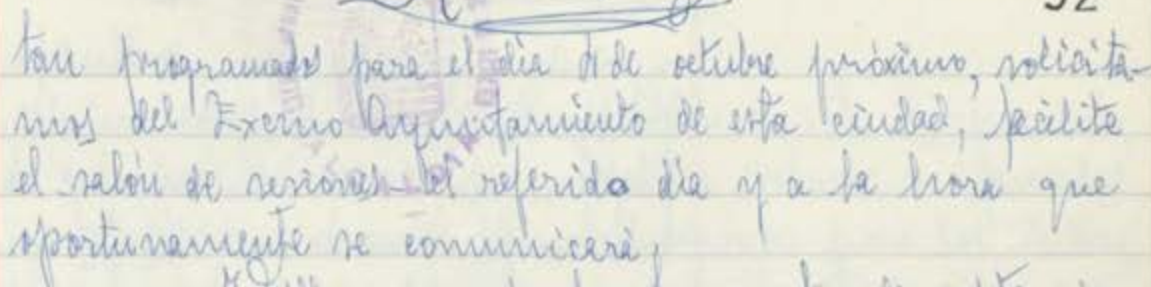 52
tan programados para el día de octubre próximo, solicita-
mos del Excmo Ayuntamiento de esta ciudad, facilite
el salón de sesiones el referido día y a la hora que
oportunamente se comunicará,